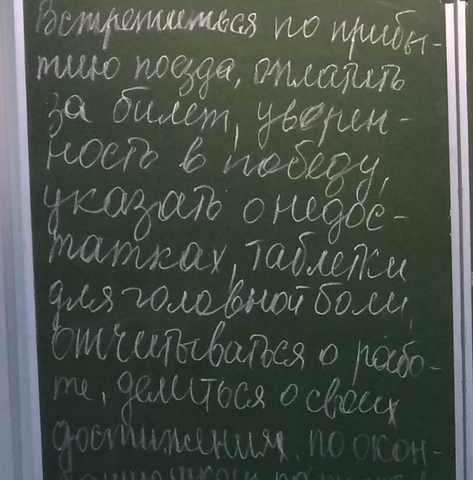 Встретиться по прибы-
тию поезда, оплатить
за билет, уверен-
ность в победу,
указать о недос-
татках, таблетки
для головной боли,
отчитываться о рабо-
те, делиться о своих
достижениях, по окон-